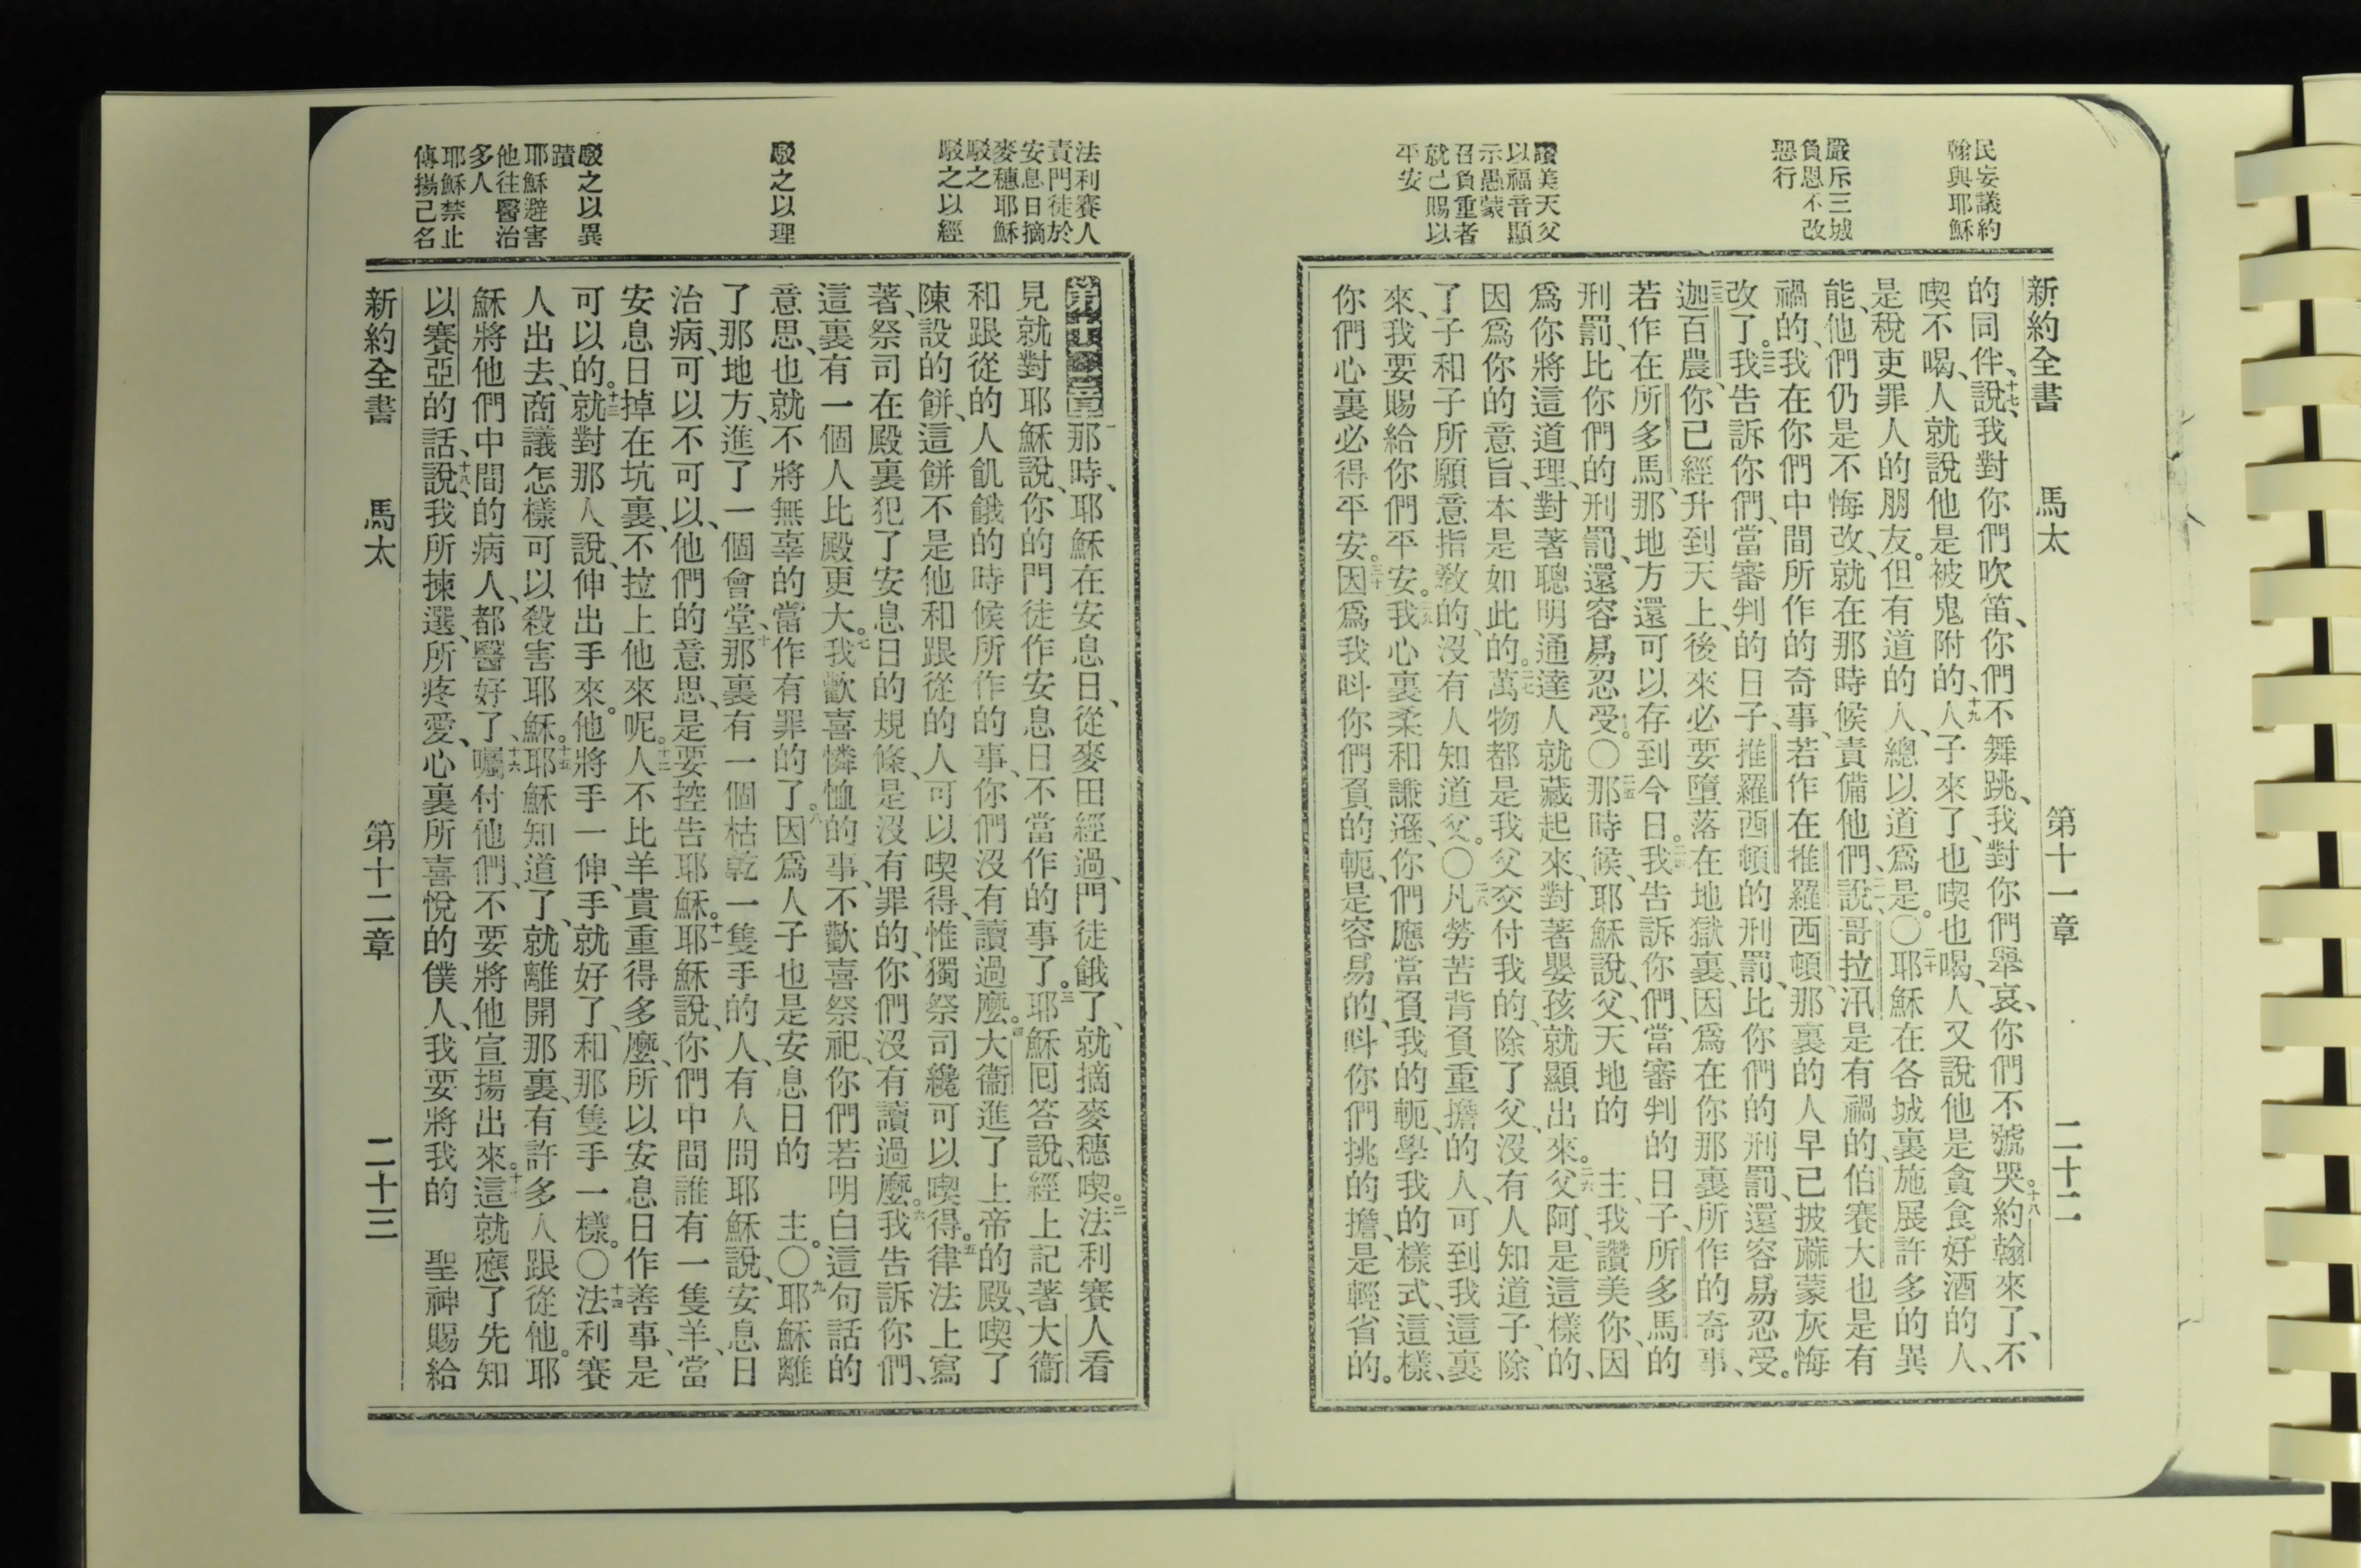 民妄議約
翰與耶穌
嚴斥三城
負恩不改
惡行
讚美天父
以福音顯
示愚蒙
召負重者
就己賜以
平安
新約全書 馬太 第十一章 二十二
的同伴、十七說、我對你們吹笛、你們不舞跳、我對你們舉哀、你們不號哭。十八約翰來了、不
喫不喝、人就說他是被鬼附的、十九人子來了、也喫也喝、人又說他是貪食好酒的人、
是稅吏罪人的朋友。但有道的人、總以道爲是。〇二十耶穌在各城裏、施展許多的異
能、他們仍是不悔改、就在那時候責備他們、說、二一哥拉汛是有禍的、伯賽大也是有
禍的、我在你們中間所作的奇事、若作在推羅西頓、那裏的人早已披蔴蒙灰悔
改了。二二我告訴你們、當審判的日子、推羅西頓的刑罰、比你們的刑罰、還容易忍受。
二三迦百農、你已經升到天上、後來必要墮落在地獄裏、因爲在你那裏所作的奇事、
若作在所多馬、那地方還可以存到今日。二四我告訴你們、當審判的日子、所多馬的
刑罰、比你們的刑罰、還容易忍受。〇二五那時候、耶穌說、父、天地的 主、我讚美你、因
爲你將這道理、對著聰明通達人就藏起來、對著嬰孩就顯出來。二六父阿、是這樣的、
因爲你的意旨、本是如此的。二七萬物都是我父交付我的、除了父、沒有人知道子、除
了子和子所願意指敎的、沒有人知道父。〇二八凡勞苦背負重擔的人、可到我這裏
來、我要賜給你們平安。二九我心裏柔和謙遜、你們應當負我的軛、學我的樣式、這樣、
你們心裏必得平安。三十因爲我呌你們負的軛、是容易的、呌你們挑的擔、是輕省的。
法利賽人
責門徒於
安息日摘
麥穗耶穌
駁之
駁之以經
駁之以理
駁之以異
蹟
耶穌避害
他往醫治
多人
耶穌禁止
傳揚己名
第十二章一那時、耶穌在安息日、從麥田經過、門徒餓了、就摘麥穗喫。二法利賽人看
見就對耶穌說、你的門徒作安息日不當作的事了。三耶穌回答說、經上記著大衞
和跟從的人飢餓的時候所作的事、你們沒有讀過麽。四大衞進了上帝的殿、喫了
陳設的餅、這餅不是他和跟從的人可以喫得、惟獨祭司纔可以喫得。五律法上寫
著、祭司在殿裏犯了安息日的規條、是沒有罪的、你們沒有讀過麽。六我告訴你們、
這裏有一個人比殿更大。七我歡喜憐恤的事、不歡喜祭祀、你們若明白這句話的
意思、也就不將無辜的當作有罪的了。八因爲人子也是安息日的 主。〇九耶穌離
了那地方、進了一個會堂、十那裏有一個枯乾一隻手的人、有人問耶穌說、安息日
治病、可以不可以、他們的意思、是要控告耶穌。十一耶穌說、你們中間誰有一隻羊、當
安息日掉在坑裏、不拉上他來呢。十二人不比羊貴重得多麽、所以安息日作善事、是
可以的。十三就對那人說、伸出手來。他將手一伸、手就好了、和那隻手一樣。〇十四法利賽
人出去、商議怎樣可以殺害耶穌。十五耶穌知道了、就離開那裏、有許多人跟從他。耶
穌將他們中間的病人、都醫好了、十六囑付他們、不要將他宣揚出來。十七這就應了先知
以賽亞的話、說、十八我所揀選、所疼愛、心裏所喜悅的僕人、我要將我的 聖神賜給
新約全書 馬太 第十二章 二十三